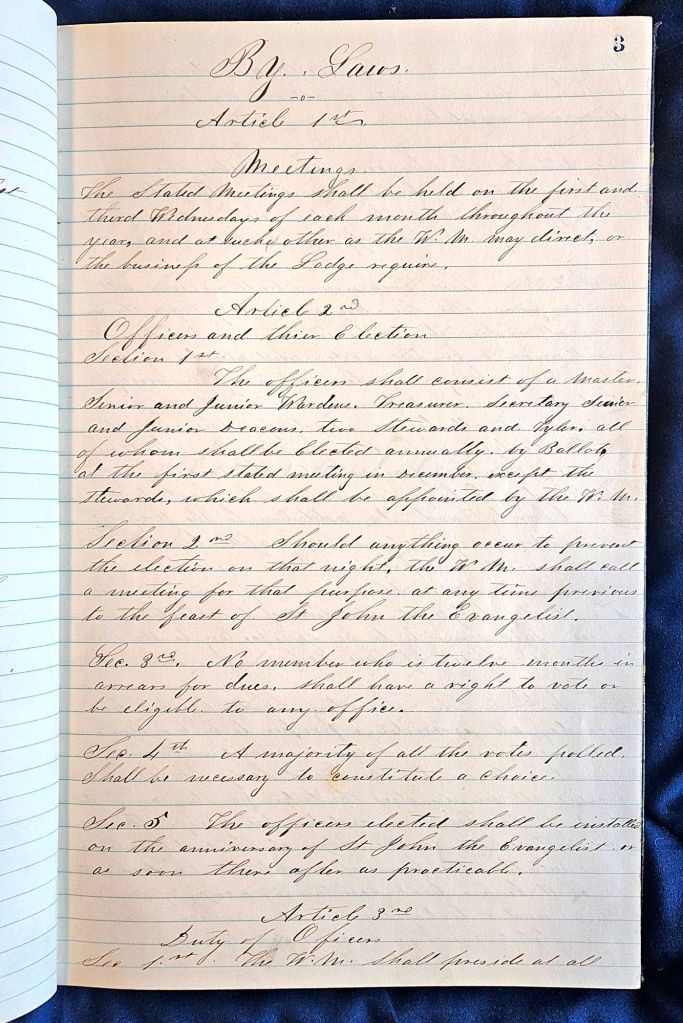 3
By. Laws.
-o-
Article 1st.
Meetings.
The Stated Meetings shall be held on the first and
third Wednesdays of each month throughout the
year, and at such other as the W. M. may direct, or
the business of the Lodge require.
Article 2nd
Officers and thier Election
Section 1st.
The officers shall consist of a Master,
Senior and Junior Wardens. Treasurer. Secretary Senior
and Junior Deacons, two Stewards and Tyler, all
of whom shall be Elected annually. by Ballot,
at the first stated meeting in December, except the
Stewards, which shall be appointed by the W. M.
Section 2nd Should anything occur to prevent
the election on that night, the W M. shall call
a meeting for that purpose at any time previous
to the feast of St John the Evangelist.
Sec. 3rd. No member who is twelve months in
arrears for dues. shall have a right to vote or
be eligible to any office.
Sec. 4th A majority of all the votes polled.
Shall be necessary to constitute a choice.
Sec. 5 The officers elected shall be installed
on the anniversary of St John the Evangelist or
as soon there after as practicable.
Article 3rd
Duty of Officers
Sec 1.st. The W. M. Shall preside at all